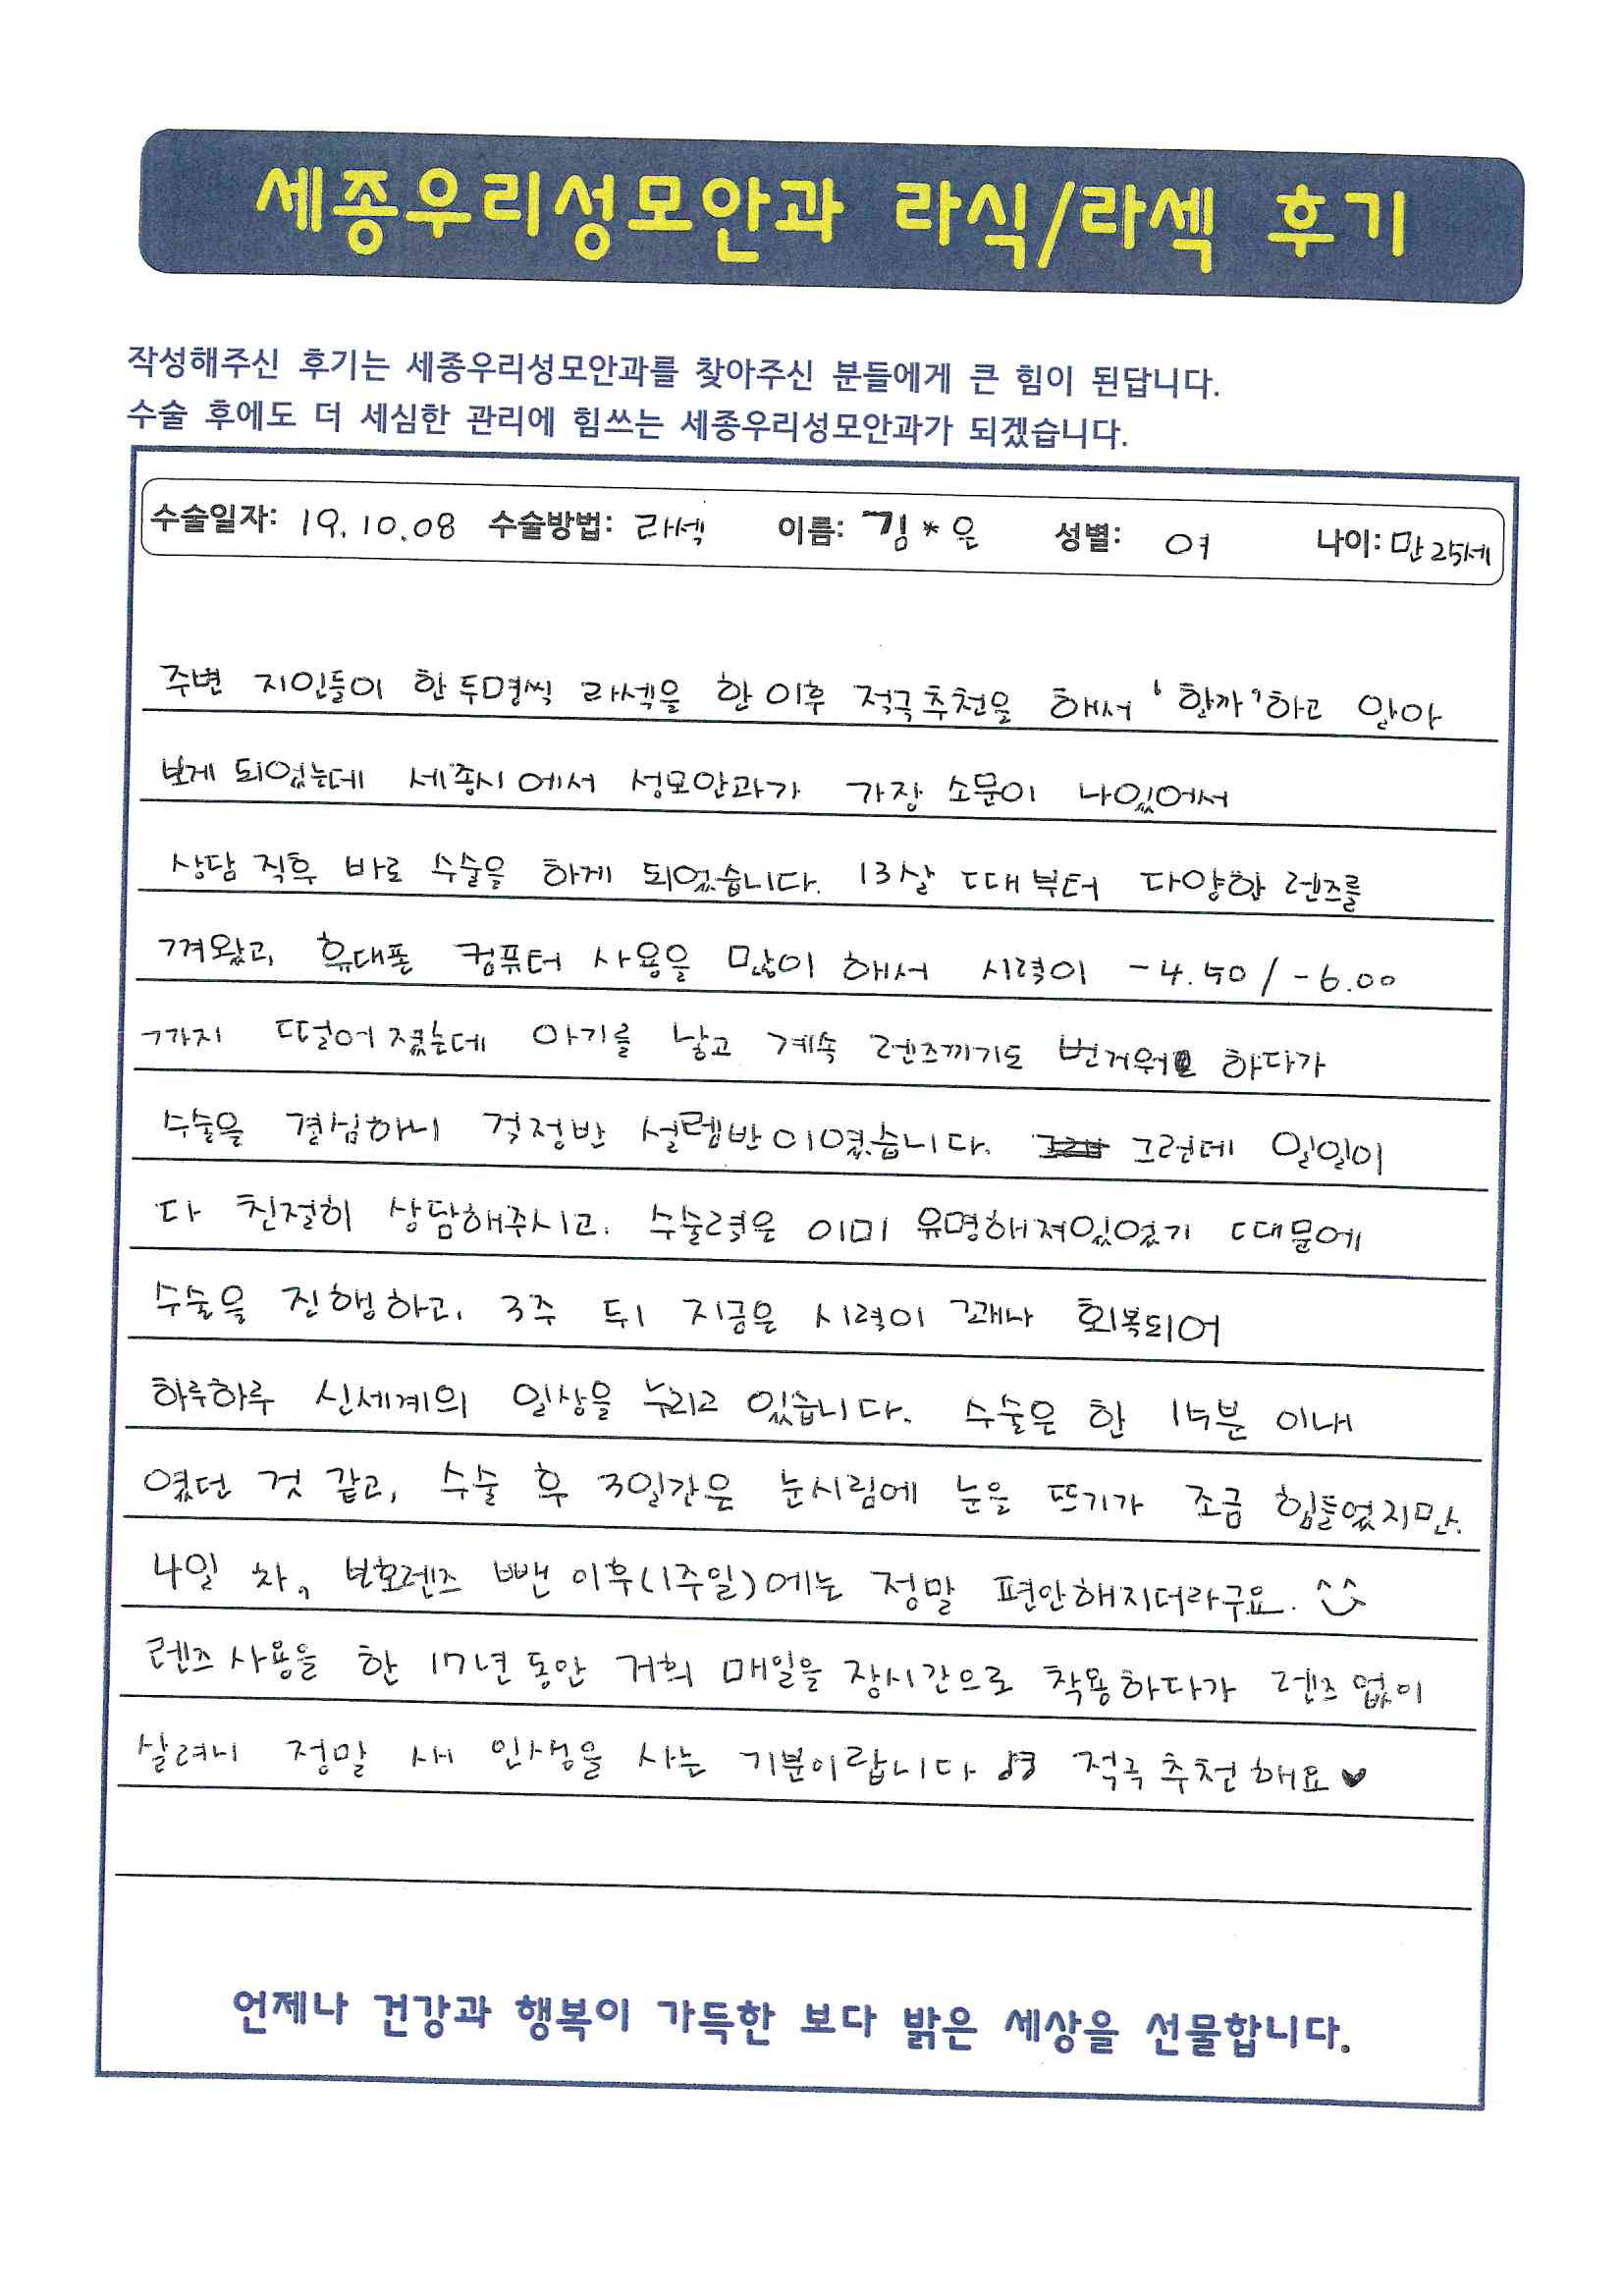 세종우리성모안과 라식/라섹 후기
작성해주신 후기는 세종우리성모안과를 찾아주신 분들에게 큰 힘이 된답니다.
수술 후에도 더 세심한 관리에 힘쓰는 세종우리성모안과가 되겠습니다.
수술일자: 19.10.08 수술방법: 라섹 이름: 김*은 성별: 여 나이: 만25세
주변 지인들이 한두명씩 라섹을 한이후 적극추천을 해서 '할까'하고 알아
보게 되었는데 세종시에서 성모안과가 가장 소문이 나있어서
상담 직후 바로 수술을 하게 되었습니다. 13살 때부터 다양한 렌즈를
껴왔고, 휴대폰 컴퓨터 사용을 많이 해서 시력이 -4.50 / -6.00
까지 떨어졌는데 아기를 낳고 계속 렌즈끼기도 번거워 하다가
수술을 결심하니 걱정반 설렘반이였습니다. 그런데 일일이
다 친절히 상담해주시고. 수술력은 이미 유명해져있었기 때문에
수술을 진행하고, 3주 뒤 지금은 시력이 꽤나 회복되어
하루하루 신세계의 일상을 누리고 있습니다. 수술은 한 15분 이내
였던 것 같고, 수술 후 3일간은 눈시림에 눈을 뜨기가 조금 힘들었지만.
4일 차, 보호렌즈 뺀 이후(1주일)에는 정말 편안해지더라구요. ^^
렌즈사용을 한 17년동안 거의 매일을 장시간으로 착용하다가 렌즈없이
살려니 정말 새 인생을 사는 기분이랍니다 ♪♬ 적극추천해요♥
언제나 건강과 행복이 가득한 보다 밝은 세상을 선물합니다.